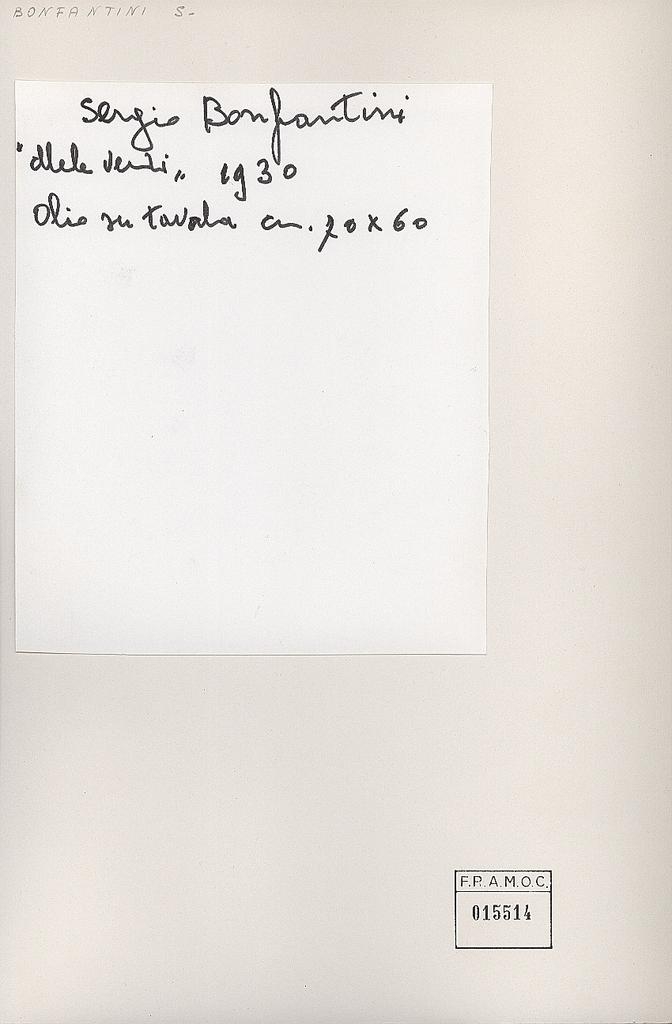 BONFANTINI S-
Sergio Bonfantini
"Mele verdi„ 1930
Olio su tavola cm. 70x60
F.P.A.M.O.C.
015514